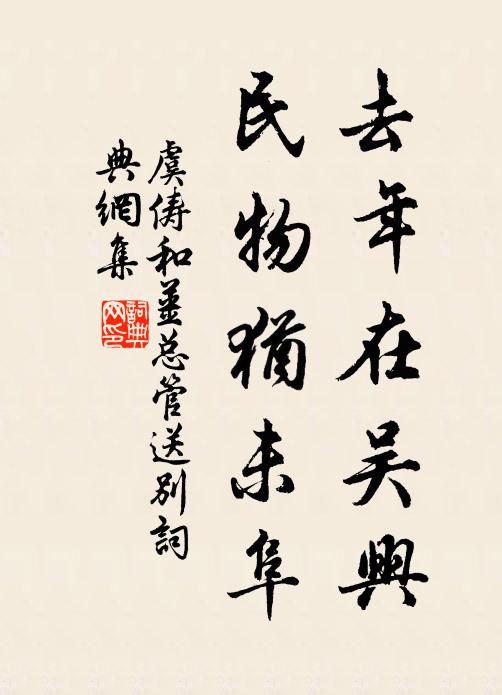 去年在吴興
民物猶未阜
虞俦和姜总管送别詞
典網集
詞典网印